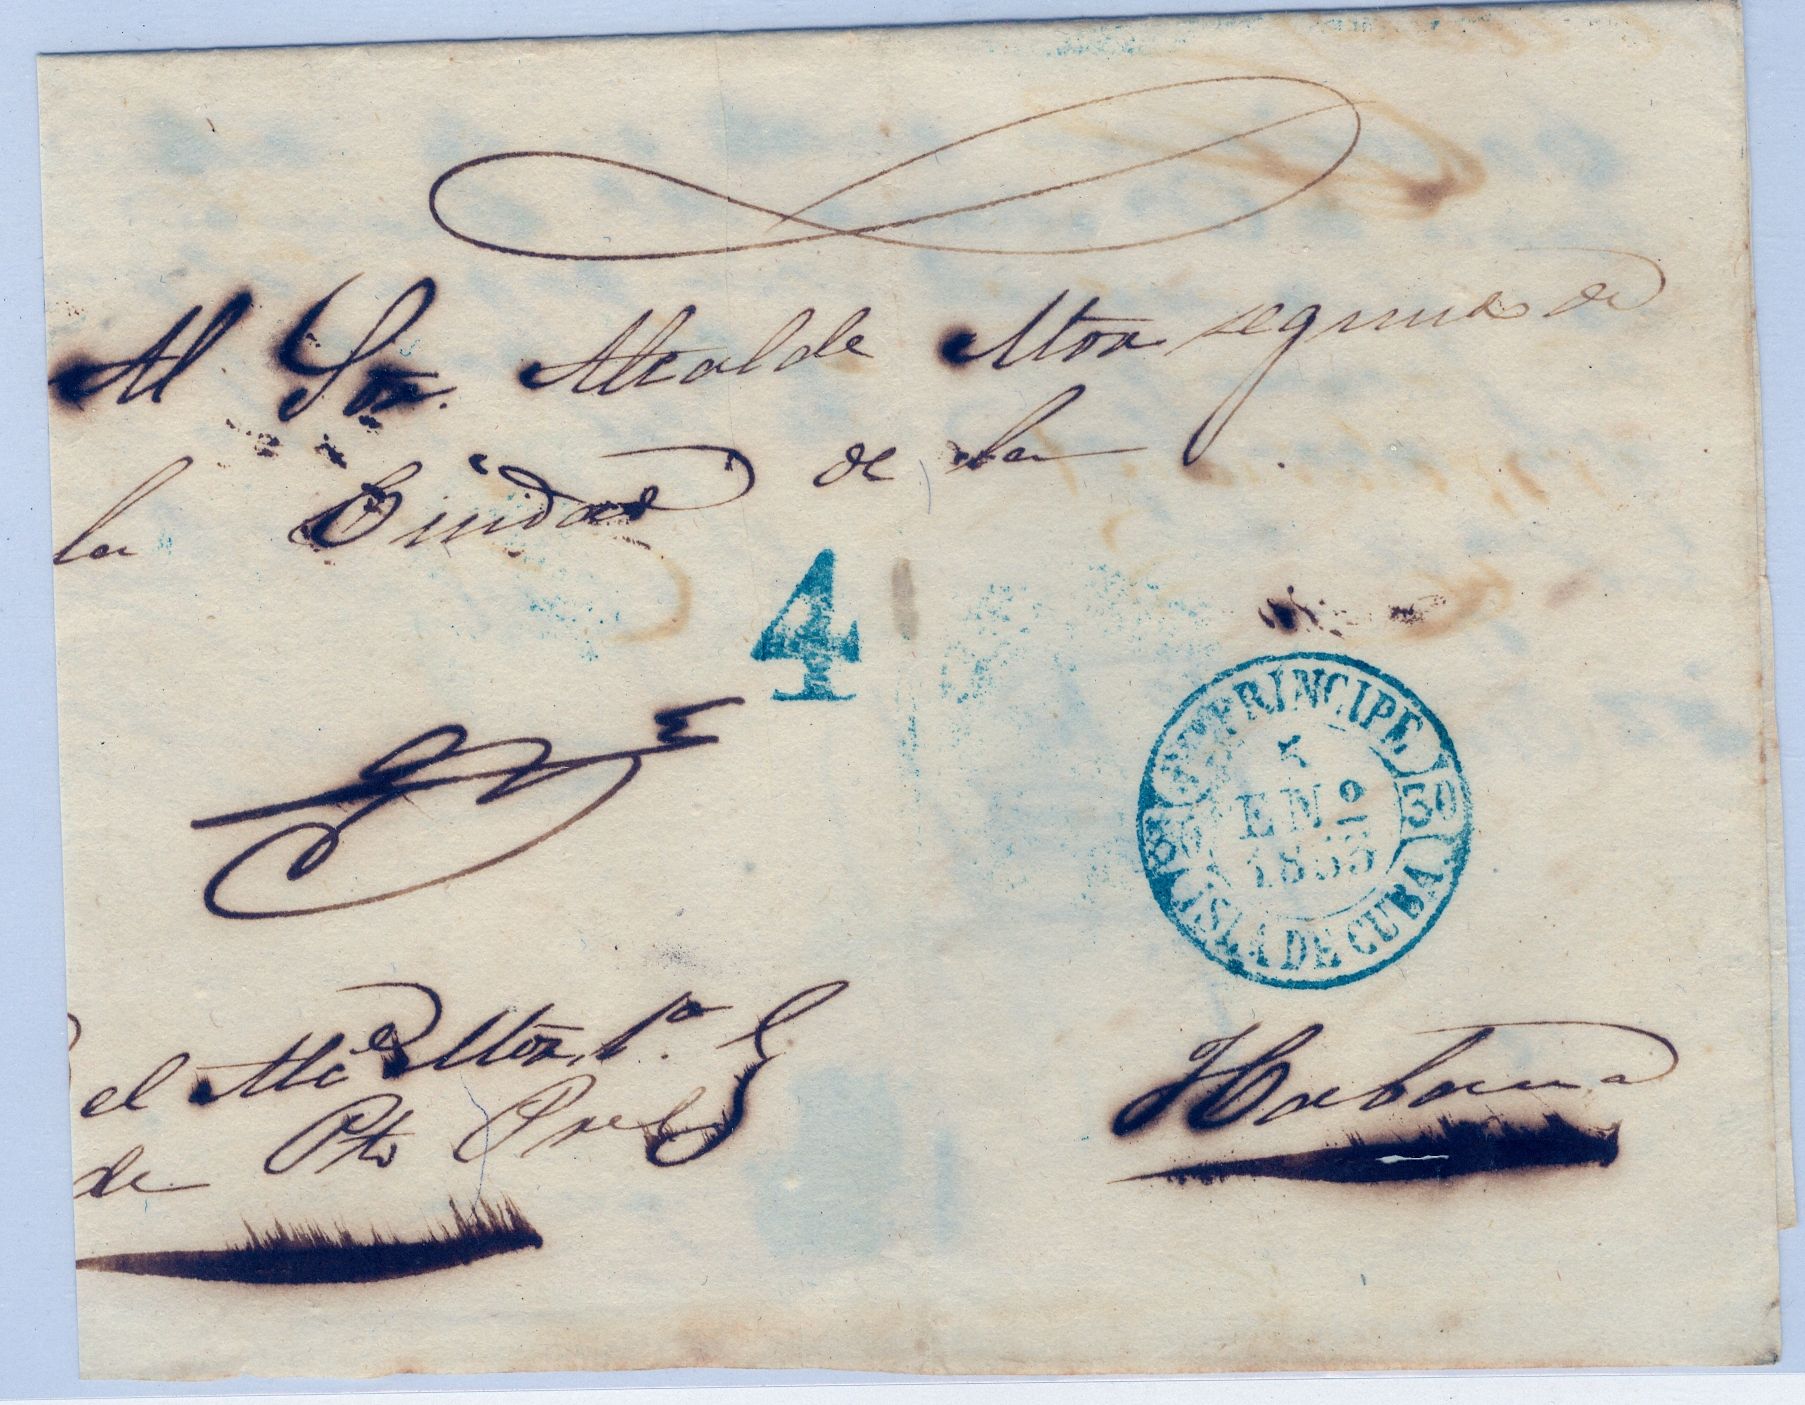 Al Sor. Alcalde Mor segundo de
la Ciudad de la
4
PTO PRINCIPE
5
ENº
1855
30
ISLA DE CUBA
el Alce Mor 1º
de Pto Pre
Habana